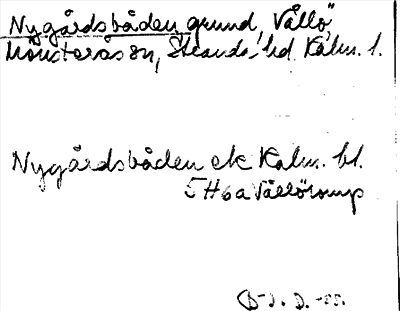 Nygårdsbåden, grund, Vållö,
Mönsterås sn, Stranda hd Kalm. l.
Nygårdsbåden ek Kalm. bl.
5H6a Vållöromp
D-55.